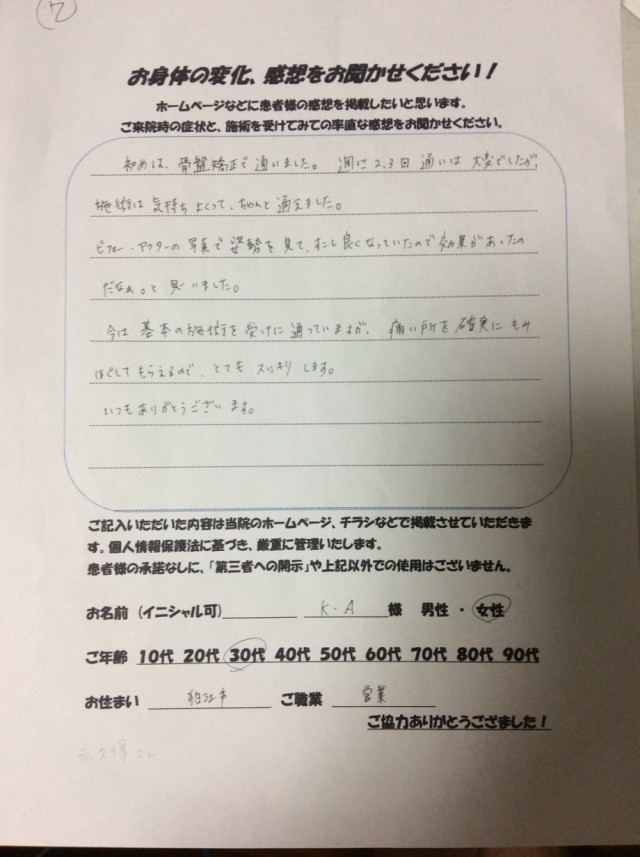 7
お身体の変化、感想をお聞かせください！
ホームページなどに患者様の感想を掲載したいと思います。
ご来院時の症状と、施術を受けてみての率直な感想をお聞かせください。
初めは、骨盤矯正で通いました。週に2,3回通いは大変でしたが、
施術は気持ちよくって、ちゃんと通えました。
ビフォー・アフターの写真で姿勢を見て、すこし良くなっていたので効果があったの
だなぁ。と思いました。
今は基本の施術を受けに通っていますが、痛い所を確実にもみ
ほぐしてもらえるので、とてもスッキリします。
いつもありがとうございます。
ご記入いただいた内容は当院のホームページ、チラシなどで掲載させていただきま
す。個人情報保護法に基づき、厳重に管理いたします。
患者様の承諾なしに、「第三者への開示」や上記以外での使用はございません。
お名前（イニシャル可） K・A 様 男性・女性
ご年齢 10代 20代 30代 40代 50代 60代 70代 80代 90代
お住まい 狛江市 ご職業 営業
ご協力ありがとうござました！